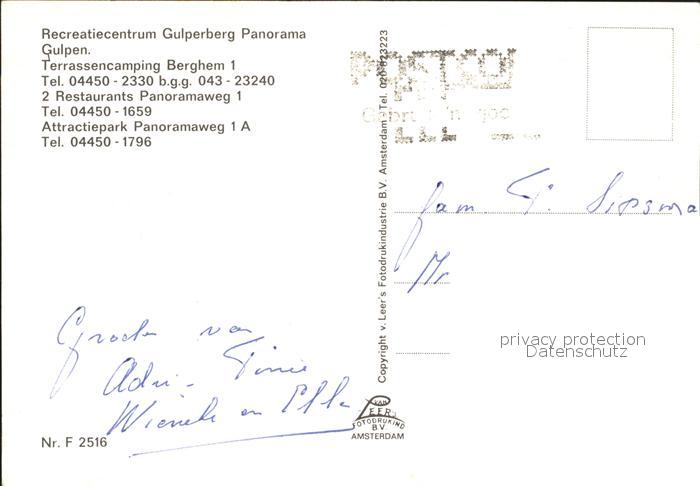 Recreatiecentrum Gulperberg Panorama
Gulpen.
Terrassencamping Berghem 1
Tel. 04450 - 2330 b.g.g. 043 - 23240
2 Restaurants Panoramaweg 1
Tel. 04450 - 1659
Attractiepark Panoramaweg 1 A
Tel. 04450 - 1796
Groeten van
Adri - Tinie
Wieneke en Ella
Nr. F 2516
Copyright v. Leer's Fotodrukindustrie B.V. Amsterdam Tel. 020-823223
VAN
LEER
FOTODRUKIND
BV
AMSTERDAM
fam. T. Sipsma
Mr
privacy protection
Datenschutz